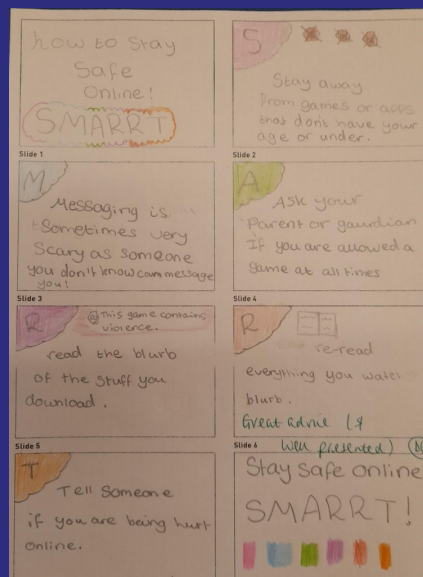 how to Stay
Safe
Online!
SMARRT
Slide 1
S
Stay away
from games or apps
that don't have your
age or under.
Slide 2
M
Messaging is
Sometimes very
Scary as someone
you don't know can message
you!
Slide 3
A
Ask your
Parent or gaurdian
If you are allowed a
game at all times
Slide 4
R
This game contains
violence.
read the blurb
of the stuff you
download.
Slide 5
R
re-read
everything you
blurb.
Great advice (&
Well presented)
Slide 6
T
Tell Someone
if you are being hurt
online.
Stay safe online
SMARRT!